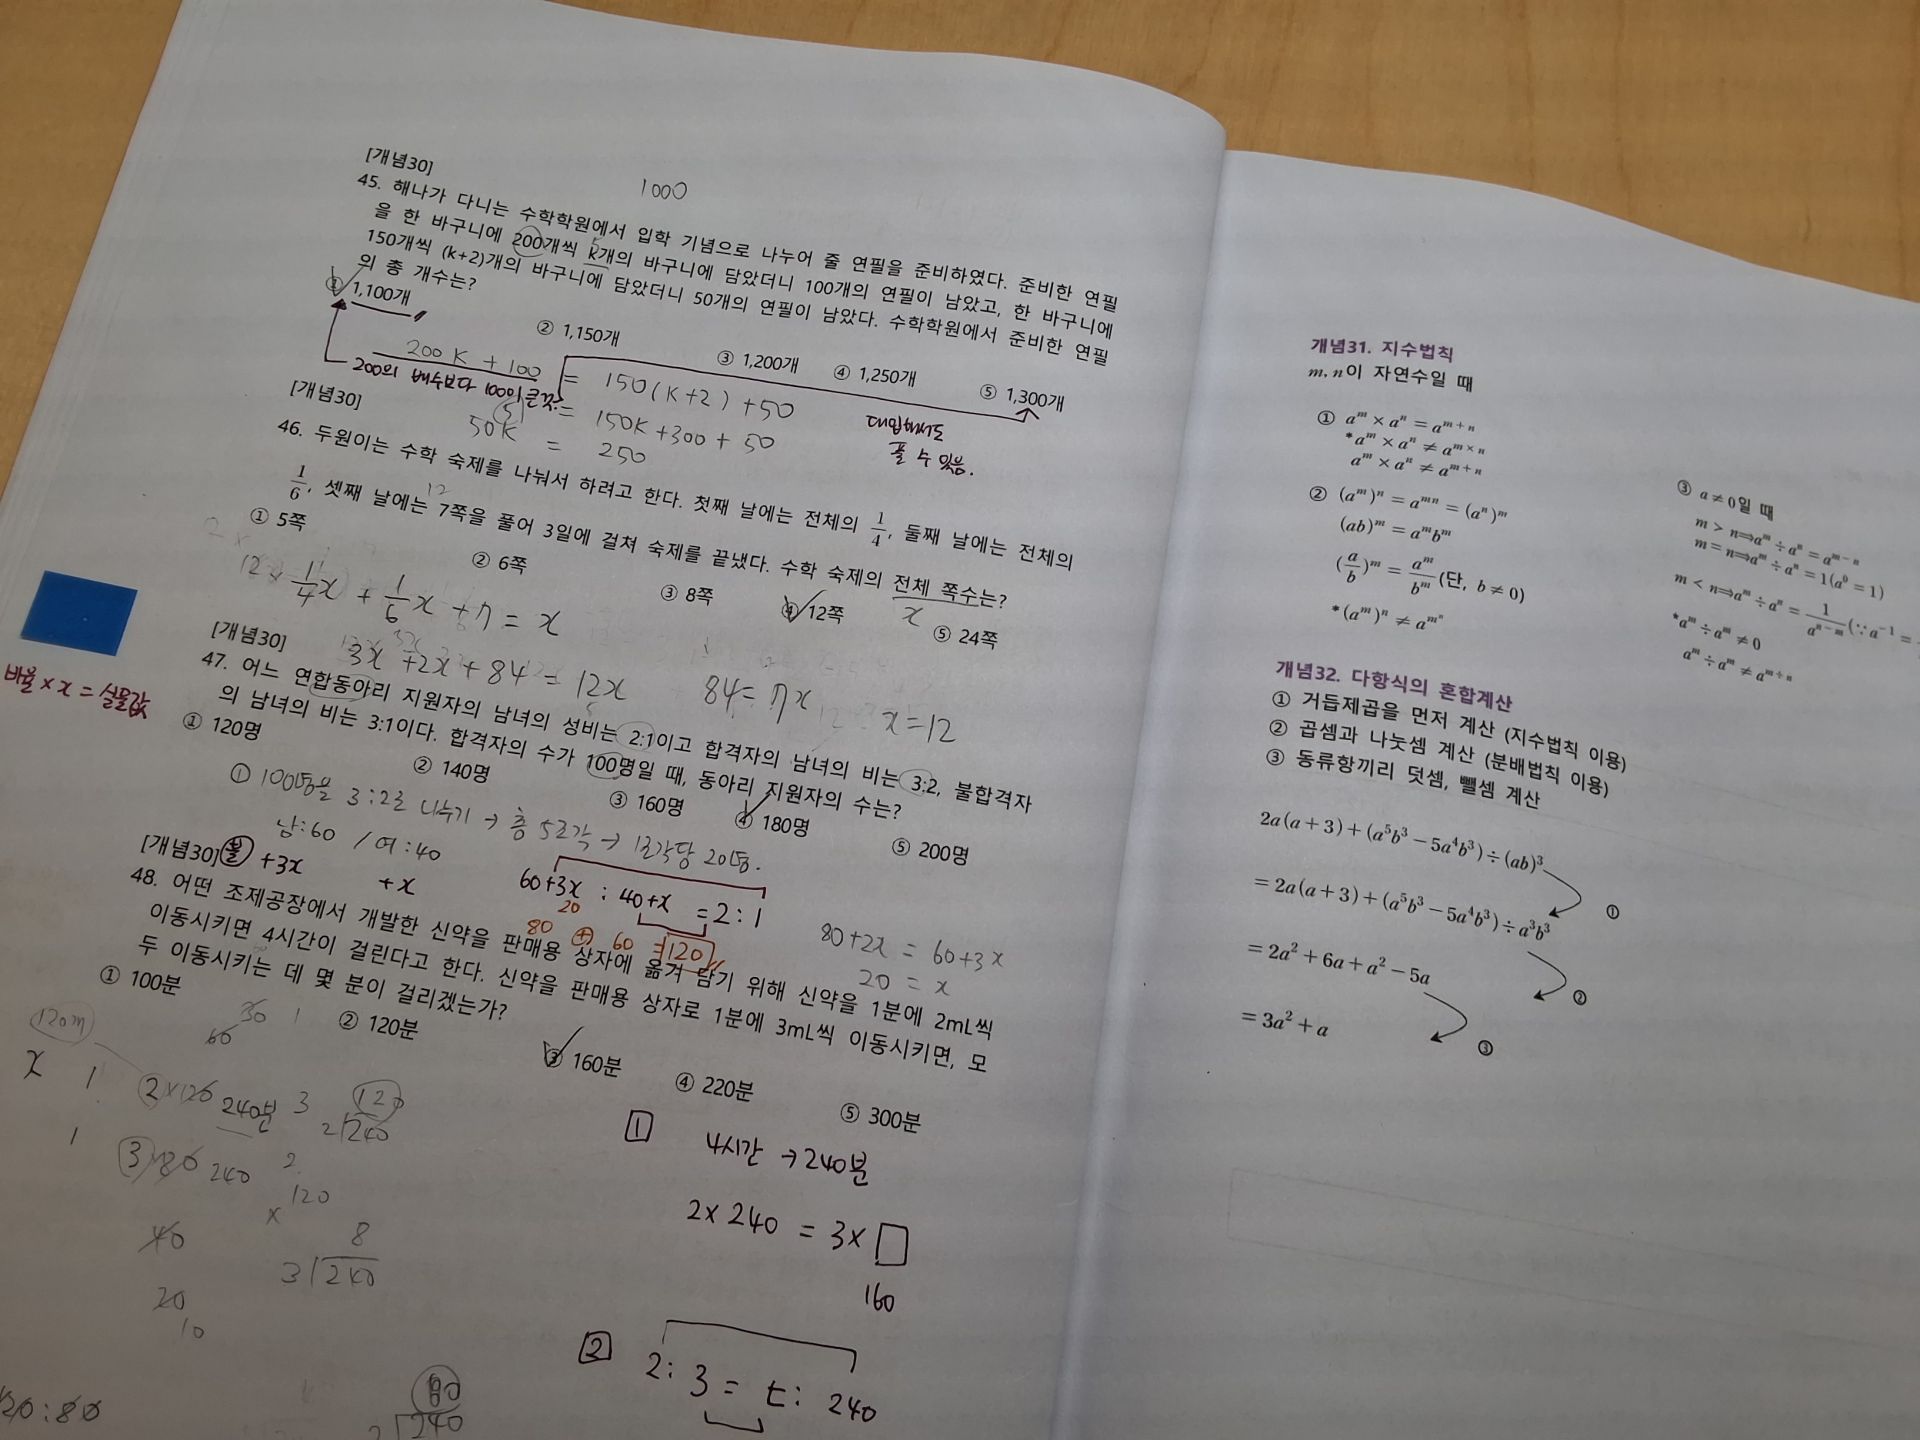 [개념30]
1000
45. 해나가 다니는 수학학원에서 입학 기념으로 나누어 줄 연필을 준비하였다. 준비한 연필
을 한 바구니에 200개씩 k개의 바구니에 담았더니 100개의 연필이 남았고, 한 바구니에
150개씩 (k+2)개의 바구니에 담았더니 50개의 연필이 남았다. 수학학원에서 준비한 연필
의 총 개수는?
① 1,100개 ② 1,150개 ③ 1,200개 ④ 1,250개 ⑤ 1,300개
200k + 100 = 150(k+2) + 50
200의 배수보다 100이 큰것.
= 150k + 300 + 50
50k = 250
대입해서도
풀 수 있음.
[개념30]
46. 두원이는 수학 숙제를 나눠서 하려고 한다. 첫째 날에는 전체의 1/4, 둘째 날에는 전체의
1/6, 셋째 날에는 7쪽을 풀어 3일에 걸쳐 숙제를 끝냈다. 수학 숙제의 전체 쪽수는?
x
① 5쪽 ② 6쪽 ③ 8쪽 ④ 12쪽 ⑤ 24쪽
1/4x + 1/6x + 7 = x
3x + 2x + 84 = 12x
84 = 7x
x = 12
[개념30]
47. 어느 연합동아리 지원자의 남녀의 성비는 2:1이고 합격자의 남녀의 비는 3:2, 불합격자
의 남녀의 비는 3:1이다. 합격자의 수가 100명일 때, 동아리 지원자의 수는?
비율 × x = 실물값
① 120명 ② 140명 ③ 160명 ④ 180명 ⑤ 200명
① 100명을 3:2로 나누기 → 총 5조각 → 1조각당 20명.
남:60 / 여:40
불 +3x +x
60+3x : 40+x = 2 : 1
20
80 + 60 = 120
80+2x = 60+3x
20 = x
[개념30]
48. 어떤 조제공장에서 개발한 신약을 판매용 상자에 옮겨 담기 위해 신약을 1분에 2mL씩
이동시키면 4시간이 걸린다고 한다. 신약을 판매용 상자로 1분에 3mL씩 이동시키면, 모
두 이동시키는 데 몇 분이 걸리겠는가?
① 100분 ② 120분 ③ 160분 ④ 220분 ⑤ 300분
30 1
60
x 1
2×120 240분 3
120
2 240
1
3×80 240
2
120
×
40
8
3 240
20
10
80
240
120:80
1
4시간 → 240분
2×240 = 3×□
160
2
2:3 = t:240
개념31. 지수법칙
m, n이 자연수일 때
① a^m × a^n = a^(m+n)
*a^m × a^n ≠ a^(m×n)
a^m × a^n ≠ a^(m+n)
② (a^m)^n = a^(mn) = (a^n)^m
(ab)^m = a^m b^m
(a/b)^m = a^m/b^m (단, b≠0)
*(a^m)^n ≠ a^(m^n)
③ a≠0일 때
m > n⇒a^m ÷ a^n = a^(m-n)
m = n⇒a^m ÷ a^n = 1(a^0 = 1)
m < n⇒a^m ÷ a^n = 1/a^(n-m) (∵a^-1 =
*a^m ÷ a^m ≠ 0
a^m ÷ a^m ≠ a^(m÷n)
개념32. 다항식의 혼합계산
① 거듭제곱을 먼저 계산 (지수법칙 이용)
② 곱셈과 나눗셈 계산 (분배법칙 이용)
③ 동류항끼리 덧셈, 뺄셈 계산
2a(a+3)+(a^5b^3-5a^4b^3)÷(ab)^3
①
=2a(a+3)+(a^5b^3-5a^4b^3)÷a^3b^3
②
=2a^2+6a+a^2-5a
③
=3a^2+a